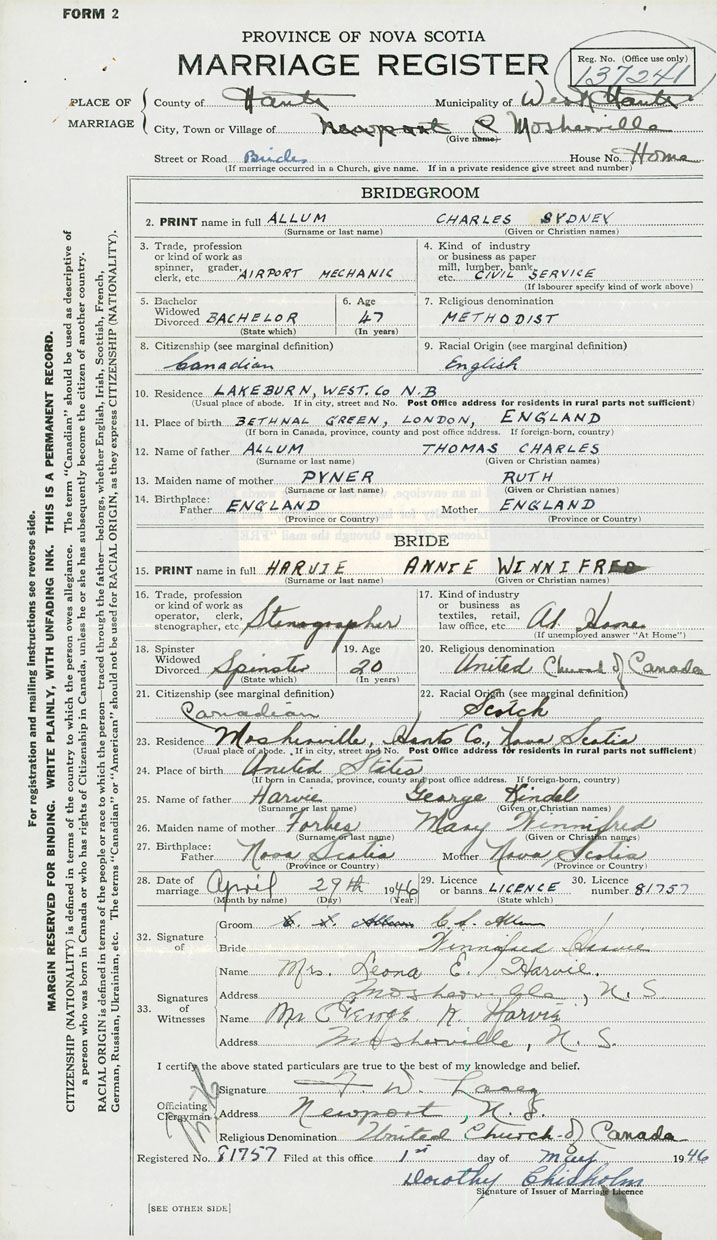 FORM 2
PROVINCE OF NOVA SCOTIA
MARRIAGE REGISTER
Reg. No. (Office use only)
137241
PLACE OF MARRIAGE
County of Hants Municipality of West Hants
City, Town or Village of Newport Mosherville
(Give name)
Street or Road Brides House No. Home
(If marriage occurred in a Church, give name. If in a private residence give street and number)
BRIDEGROOM
2. PRINT name in full ALLUM CHARLES SYDNEY
(Surname or last name) (Given or Christian names)
3. Trade, profession or kind of work as spinner, grader, clerk, etc. AIRPORT MECHANIC
4. Kind of industry or business as paper mill, lumber, bank, etc. CIVIL SERVICE
(If labourer specify kind of work above)
5. Bachelor Widowed Divorced BACHELOR
(State which)
6. Age 47
(In years)
7. Religious denomination
METHODIST
8. Citizenship (see marginal definition)
Canadian
9. Racial Origin (see marginal definition)
English
10. Residence LAKEBURN, WEST. CO N.B
(Usual place of abode. If in city, street and No. Post Office address for residents in rural parts not sufficient)
11. Place of birth BETHNAL GREEN, LONDON, ENGLAND
(If born in Canada, province, county and post office address. If foreign-born, country)
12. Name of father ALLUM THOMAS CHARLES
(Surname or last name) (Given or Christian names)
13. Maiden name of mother PYNER RUTH
(Surname or last name) (Given or Christian names)
14. Birthplace: Father ENGLAND Mother ENGLAND
(Province or Country) (Province or Country)
BRIDE
15. PRINT name in full HARVIE ANNIE WINNIFRED
(Surname or last name) (Given or Christian names)
16. Trade, profession or kind of work as operator, clerk, stenographer, etc. Stenographer
17. Kind of industry or business as textiles, retail, law office, etc. At Home
(If unemployed answer "At Home")
18. Spinster Widowed Divorced Spinster
(State which)
19. Age 20
(In years)
20. Religious denomination
United Church of Canada
21. Citizenship (see marginal definition)
Canadian
22. Racial Origin (see marginal definition)
Scotch
23. Residence Mosherville, Hants Co., Nova Scotia
(Usual place of abode. If in city, street and No. Post Office address for residents in rural parts not sufficient)
24. Place of birth United States
(If born in Canada, province, county and post office address. If foreign-born, country)
25. Name of father Harvie George Kindel
(Surname or last name) (Given or Christian names)
26. Maiden name of mother Forbes Mary Winnifred
(Surname or last name) (Given or Christian names)
27. Birthplace: Father Nova Scotia Mother Nova Scotia
(Province or Country) (Province or Country)
28. Date of marriage April 29th 1946
(Month by name) (Day) (Year)
29. Licence or banns LICENCE
(State which)
30. Licence number 81757
32. Signature of
Groom C. S. Allum C. S. Allum
Bride Winnifred Harvie
33. Signatures of Witnesses
Name Mrs. Leona E. Harvie.
Address Mosherville, N. S
Name Mr George K. Harvie
Address Mosherville, N. S.
I certify the above stated particulars are true to the best of my knowledge and belief.
Officiating Clergyman
Signature F. W. Lacey
Address Newport, N. S.
Religious Denomination United Church of Canada
Registered No. 81757 Filed at this office 1st day of May 1946
Dorothy Chisholm
Signature of Issuer of Marriage Licence
[SEE OTHER SIDE]
For registration and mailing instructions see reverse side.
MARGIN RESERVED FOR BINDING. WRITE PLAINLY, WITH UNFADING INK. THIS IS A PERMANENT RECORD.
CITIZENSHIP (NATIONALITY) is defined in terms of the country to which the person owes allegiance. The term "Canadian" should be used as descriptive of
a person who was born in Canada or who has rights of Citizenship in Canada, unless he or she has subsequently become the citizen of another country.
RACIAL ORIGIN is defined in terms of the people or race to which the person—traced through the father—belongs, whether English, Irish, Scottish, French,
German, Russian, Ukrainian, etc. The terms "Canadian" or "American" should not be used for RACIAL ORIGIN, as they express CITIZENSHIP (NATIONALITY).